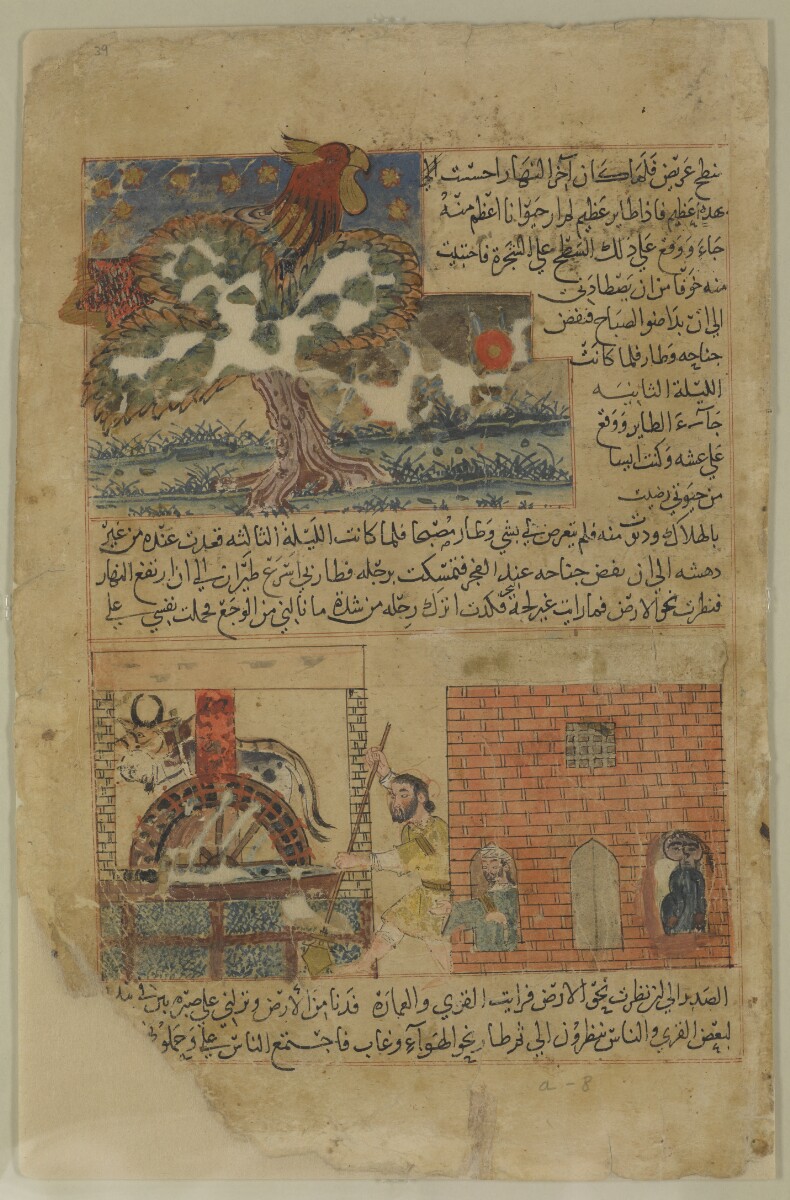 39
سطح عريض فلما كان آخر النهار احست الى
بهدة عظيمة فاذا طاير عظيم لم ار حيوانا اعظم منه
جاء ووقع على ذلك السطح على الشجرة فاختبيت
منه خوفا من ان يصطادني
الى ان بدا ضوا الصباح فنفض
جناحيه وطار فلما كانت
الليلة الثانيه
جآء الطاير ووقع
على عشه وكنت ايسا
من حيوتي رضيت
بالهلاك ودنوت منه فلم يتعرض لي بشي وطار مصبحا فلما كانت الليلة الثالثه قعدت عنده من غير
دهشه الى ان نفض جناحه عند الفجر فتمسكت برجله فطار بي اسرع طيران الى ان ارتفع النهار
فنظرت نحو الارض فما رايت غير لجة البحر فكدت اترك رجله من شدة ما نالني من الوجع فحملت نفسي على
الصبر الى ان نظرت نحو الارض فرايت القرى والعمارة فدنا من الأرض وتركني على صبره تبن في
لبعض القرى والناس ينظرون الي ثم طار نحو الهوآء وغاب فاجتمع الناس علي وحملوني
a - 8